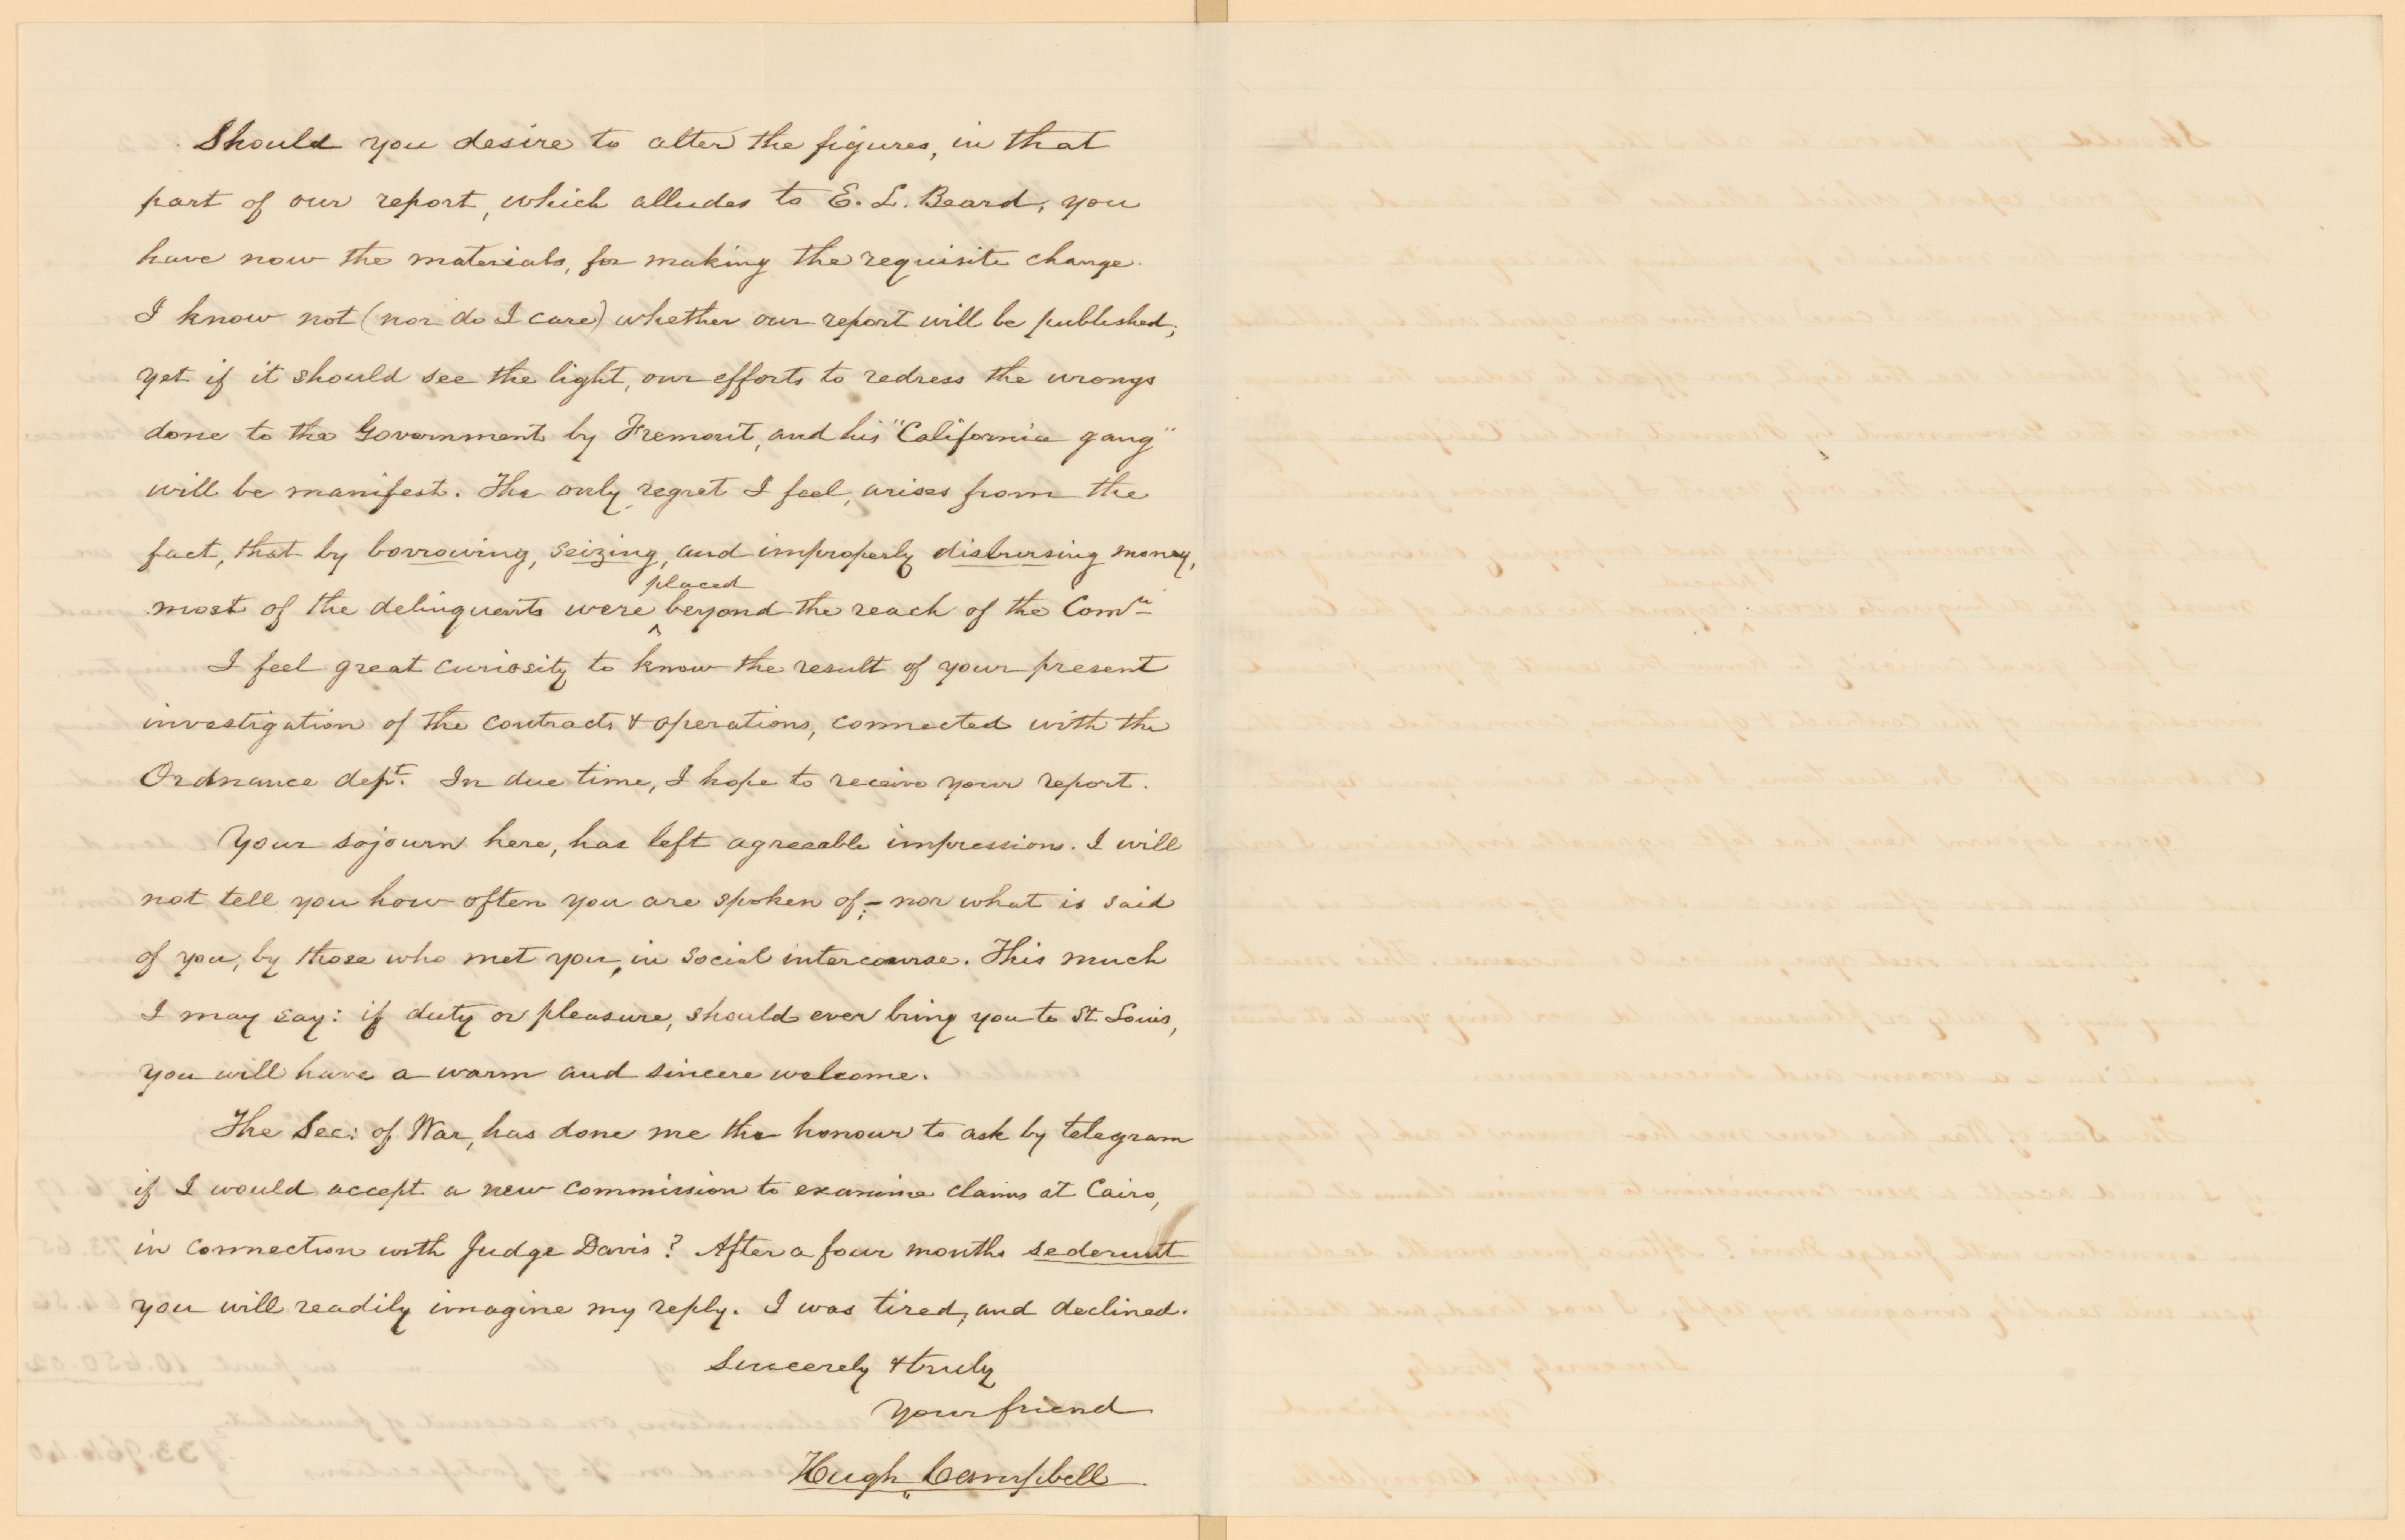 Should you desire to alter the figures, in that
part of our report, which alludes to E. L. Beard, you
have now the materials, for making the requisite change.
I know not (nor do I care) whether our report will be published;
yet if it should see the light, our efforts to redress the wrongs
done to the Government by Fremont, and his "California gang"
will be manifest. The only regret I feel, arises from the
fact, that by borrowing, seizing, and improperly disbursing money,
placed
most of the delinquents were ^ beyond the reach of the Comn
I feel great curiosity to know the result of your present
investigation of the contracts & operations, connected with the
Ordnance dept. In due time, I hope to receive your report.
Your sojourn here, has left agreeable impressions. I will
not tell you how often you are spoken of;- nor what is said
of you, by those who met you, in social intercourse. This much
I may say: if duty or pleasure, should ever bring you to St Louis,
you will have a warm and sincere welcome.
The Sec: of War, has done me the honour to ask by telegram
if I would accept a new commission to examine claims at Cairo,
in connection with Judge Davis? After a four months sederunt
you will readily imagine my reply. I was tired, and declined.
Sincerely & truly
Your friend
Hugh Campbell